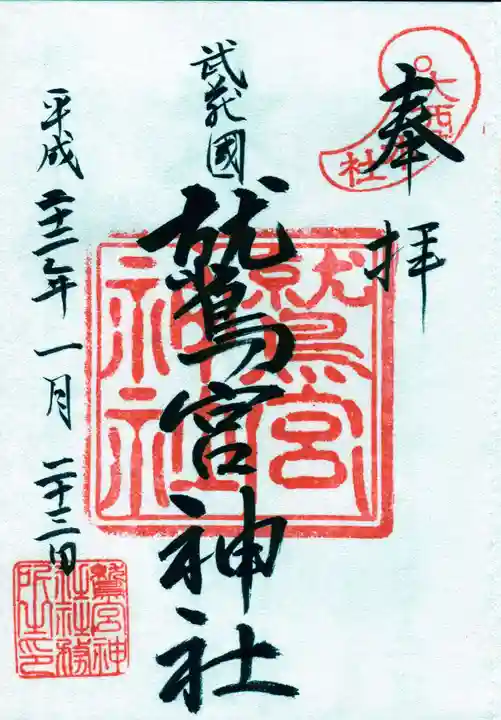 奉拝
武蔵國
鷲宮神社
平成二十二年一月二十三日
鷲宮
神社
鷲宮神
社社務
所之印